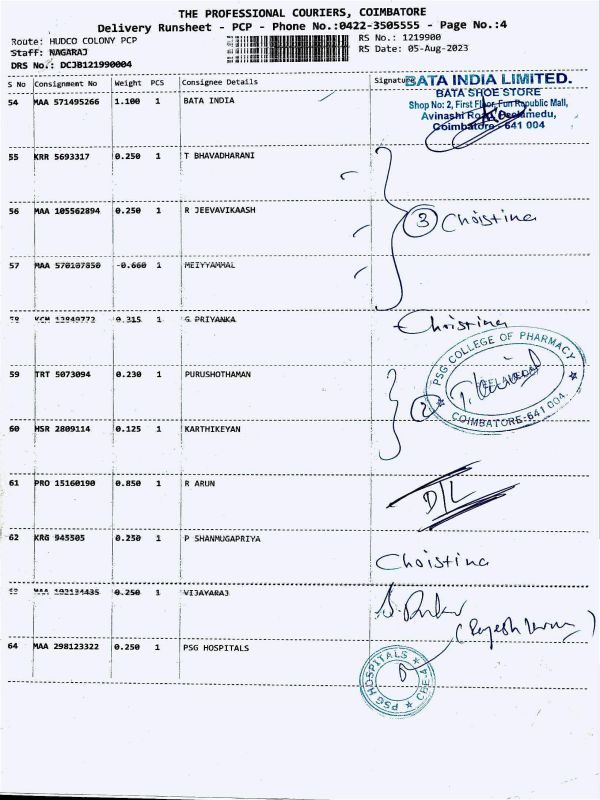 THE PROFESSIONAL COURIERS, COIMBATORE
Delivery Runsheet - PCP - Phone No.:0422-3505555 - Page No.:4
Route: HUDCO COLONY PCP
RS No.: 1219900
Staff: NAGARAJ
RS Date: 05-Aug-2023
DRS No.: DCJB121990004
S No Consignment No Weight PCS Consignee Details Signature
BATA INDIA LIMITED.
BATA SHOE STORE
Shop No: 2, First Floor, Fun Republic Mall,
Avinashi Road, Peelamedu,
Coimbatore - 641 004
54 MAA 571495266 1.100 1 BATA INDIA
55 KRR 5693317 0.250 1 T BHAVADHARANI
56 MAA 105562894 0.250 1 R JEEVAVIKAASH
3 Christina
57 MAA 570107850 0.660 1 MEIYYAMMAL
0.315 1 G PRIYANKA
Christina
PSG COLLEGE OF PHARMACY
COIMBATORE-641 004
59 TRT 5073094 0.230 1 PURUSHOTHAMAN
2
60 HSR 2809114 0.125 1 KARTHIKEYAN
61 PRO 15160190 0.850 1 R ARUN
D/L
62 KRG 945505 0.250 1 P SHANMUGAPRIYA
Christina
0.250 1 VIJAYARAJ
64 MAA 298123322 0.250 1 PSG HOSPITALS
PSG HOSPITALS
CBE-4